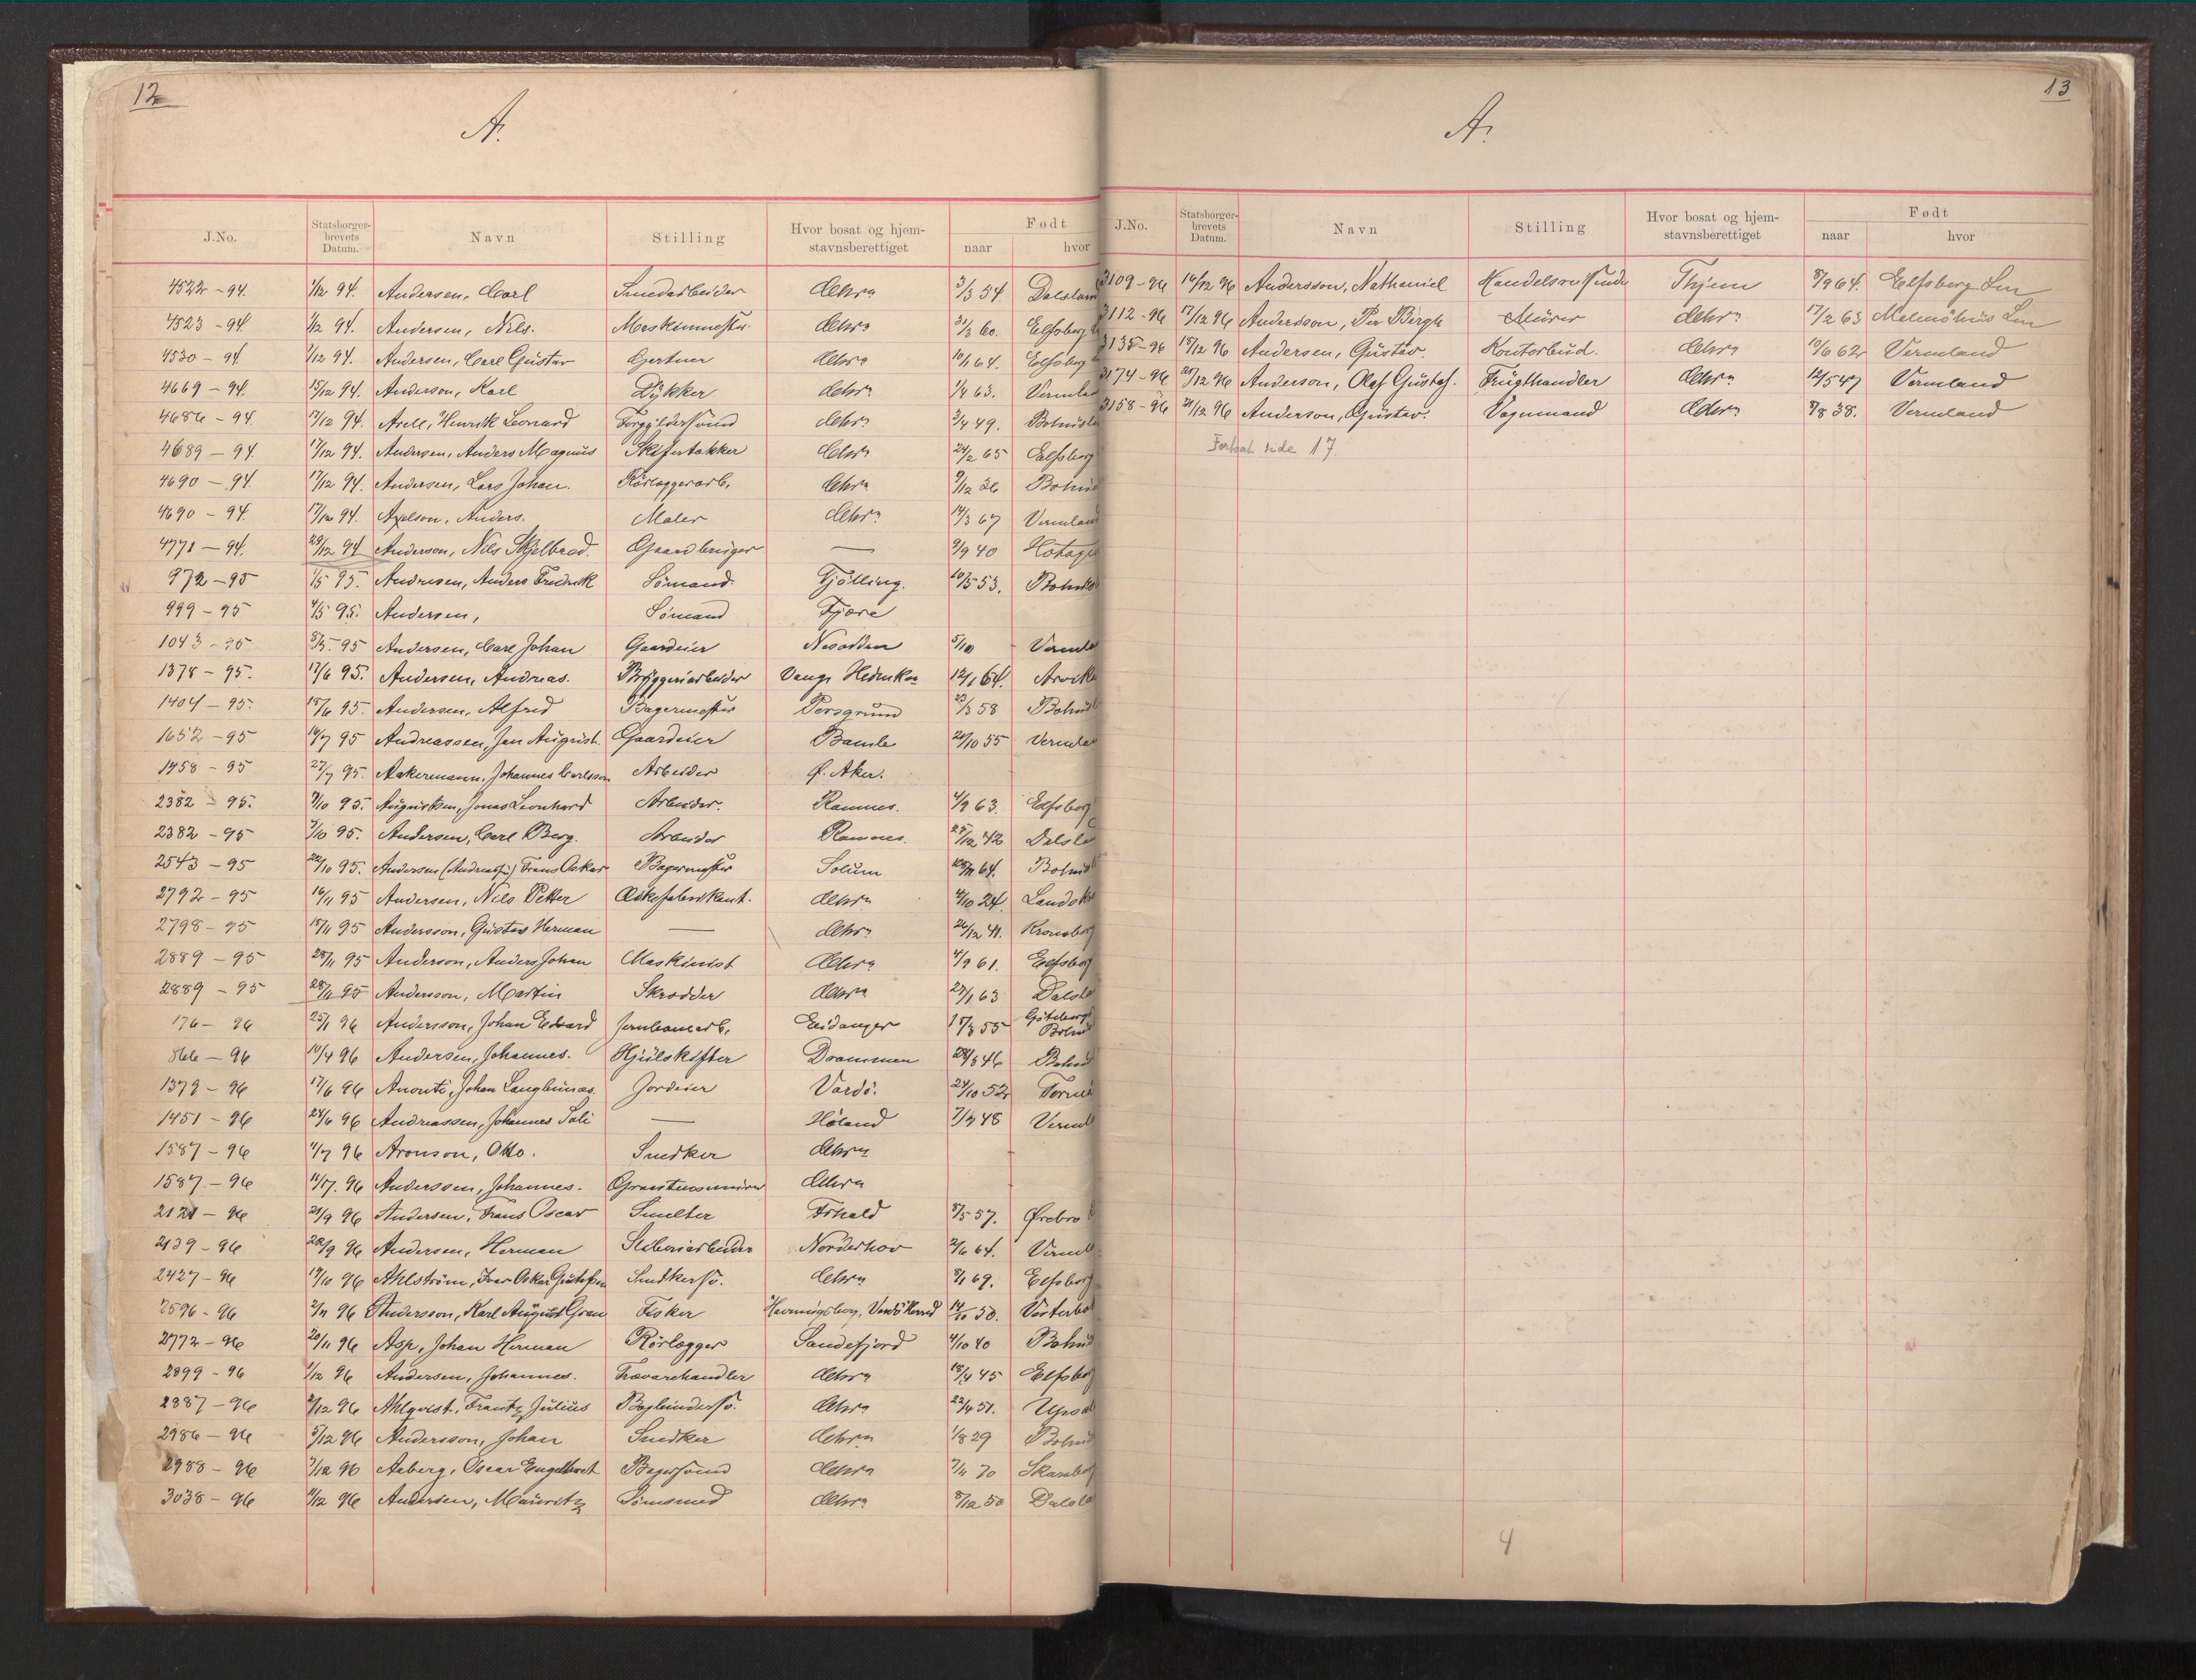 12
A.
J.No. Statsborgerbrevets Datum. Navn Stilling Hvor bosat og hjemstavnsberettiget Født naar hvor
4522 - 94. 1/12 94. Andersen, Carl Smedarbeider Chra 3/3 54 Dalsland
4523 - 94 1/12 94. Andersen, Nils. Maskinmester Chra 31/3 60. Elfsborg
4530 - 94 1/12 94. Andersen, Carl Gustav Gartner Chra 10/1 64. Elfsborg
4669 - 94. 15/12 94. Anderson, Karl Dykker Chra 1/4 63. Vermla
4686 - 94. 17/12 94. Arell, Henrik Leonard Forgyldersvend Chra 3/4 49. Bohusla
4689 - 94. 17/12 94. Andersen, Anders Magnus Skifertækker Chra 24/2 65 Elfsborg
4690 - 94. 17/12 94. Andersen, Lars Johan. Rörlæggerarb. Chra 9/12 36 Bohus
4690 - 94. 17/12 94. Axelson, Anders. Maler Chra 14/3 67 Vermland
4771 - 94. 29/12 94 Anderson, Nils Gaardbruger — 9/9 40 Hotage
972 - 95 1/5 95. Andresen, Anders Fredrik Sömand. Tjölling. 10/5 53. Bohusl
999 - 95 4/5 95. Andersen, Sömand Fjære
1043 - 95 8/5 - 95 Andersen, Carl Johan Gaardeier Nesodden 5/10 Vermla
1378 - 95. 17/6 95. Andersen, Andreas. Bryggeriarbeider Vang, Hedmken 12/1 64. Arvika
1404 - 95. 18/6 95. Andersen, Alfred Bagermester Porsgrund 23/3 58 Bohusl
1652 - 95 16/7 95 Andreassen, Jan August. Gaardeier Bamle 20/10 55 Vermla
1758 - 95 27/7 95. Aakermann, Johannes Carlsson Arbeider Ø. Aker.
2382 - 95. 9/10 95. Augustsen, Jonas Leonhard Arbeider. Ramnes. 4/9 63. Elfsborg
2382 - 95 9/10 95. Andersen, Carl Berg. Arbeider Ramnes. 25/12 42 Dalsla
2543 - 95 22/10 95. Andersen (Andreass) Frans Oskar Bagermester Solum 64. Bohusl
2792 - 95 16/11 95 Andersen, Nils Petter Æskefabrikant. Chra 4/10 24. Landsk
2798 - 95 18/11 95 Andersson, Gustav Herman — Chra 26/12 41. Kronoborg
2889 - 95 28/11 95 Anderson, Anders Johan Maskinist Chra 4/9 61. Elfsborg
2889 - 95 28/11 95 Anderson, Martin Skrædder Chra 27/1 63 Dalsla
176 - 96 25/1 96 Andersson, Johan Edvard Jernbanearb. Eidanger 18/3 55 Göteborgs Bohus
866 - 96 10/4 96 Andersen, Johannes. Hjulskifter Drammen 28/3 46 Bohusl
1379 - 96 17/6 96 Anonti, Johan Langbunæs. Jordeier Vardö. 24/10 52 Torneå
1451 - 96 24/6 96 Andreassen, Johannes Sali — Höland 7/7 48 Verml
1587 - 96 11/7 96 Aronson, Otto. Snedker Chra
1587 - 96 11/7. 96 Anderssen, Johannes. Graastensmurer Chra
2121 - 96 21/9 96 Andersen, Frans Oscar Smelter Frhald 8/5 57. Ørebro
2139 - 96 22/9 96 Andersen, Herman Sliberiarbeider Norderhov 2/6 64. Verml
2427 - 96 19/10 96 Ahlström, Ivar Oskar Gustafsen Snedkersv. Chra 8/1 69. Elfsborg
2596 - 96 2/11 96 Andersson, Karl August Gran Fisker Havningberg, Vardö Herred 14/10 50. Vesterbo
2772 - 96 20/11 96 Asp, Johan Herman Rörlægger Sandefjord 4/10 40 Bohus
2899 - 96 1/12 96 Andersen, Johannes. Trævarehandler Chra 18/4 45 Elfsborg
2887 - 96 2/12 96 Ahlqvist, Frantz Julius Bogbindersv. Chra 22/4 51. Upsal
2986 - 96 5/12 96 Andersson, Johan Snedker Chra 1/8 29 Bohusl
2988 - 96 7/12 96 Aaberg, Oscar Engelbret Bagersvend Chra 7/11 70 Skaraborg
3038 - 96 11/12 96 Andersen, Mauritz Sömsmed Chra 8/12 50 Dalsla
13
A.
J.No. Statsborgerbrevets Datum. Navn Stilling Hvor bosat og hjemstavnsberettiget Født naar hvor
3109 - 96 16/12 96 Andersson, Nathaniel Handelsreisende Thjem 8/9 64. Elfsborg Len
3112 - 96 17/12 96 Andersson, Per Bergh Murer Chra 17/2 63 Malmöhus Len
3135 - 96 18/12 96 Andersen, Gustav. Kontorbud. Chra 10/6 62 Vermland
3174 - 96 28/12 96 Anderson, Olaf Gustaf. Frugthandler Chra 12/5 47 Vermland
3158 - 96 21/12 96 Anderson, Gustav. Vognmand Chra 8/8 38. Vermland
Fortsat side 17.
4